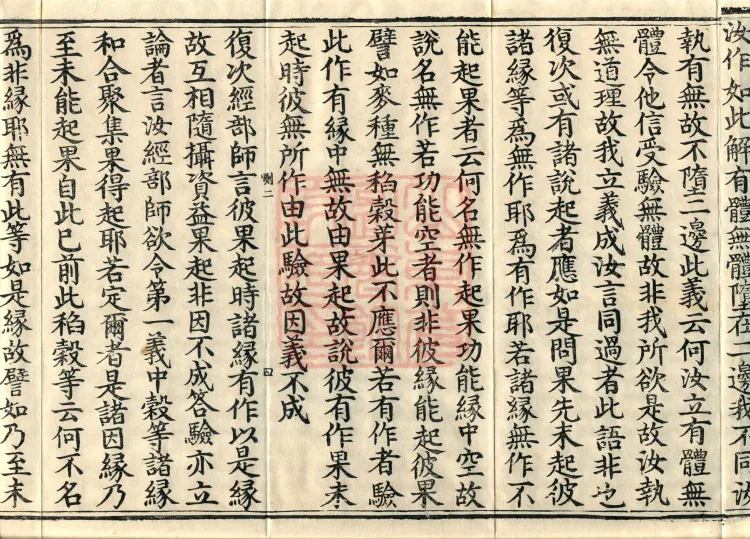 汝作如此解有體無體墮在二邊我不同汝
執有無故不墮二邊此義云何汝立有體無
體令他信受驗無體故非我所欲是故汝執
無道理故我立義成汝言同過者此語非也
復次或有諸說起者應如是問果先未起彼
諸緣等為無作耶為有作耶若諸緣無作不
能起果者云何名無作起果功能緣中空故
說名無作若功能空者則非彼緣能起彼果
譬如麥種無稻穀芽此不應爾若有作者驗
此作有緣中無故由果起故說彼有作果未
起時彼無所作由此驗故因義不成
惻二
四
復次經部師言彼果起時諸緣有作以是緣
故互相隨攝資益果起非因不成答驗亦立
論者言汝經部師欲令第一義中穀等諸緣
和合聚集果得起耶若定爾者是諸因緣乃
至未能起果自此已前此稻穀等云何不名
為非緣耶無有此等如是緣故譬如乃至未